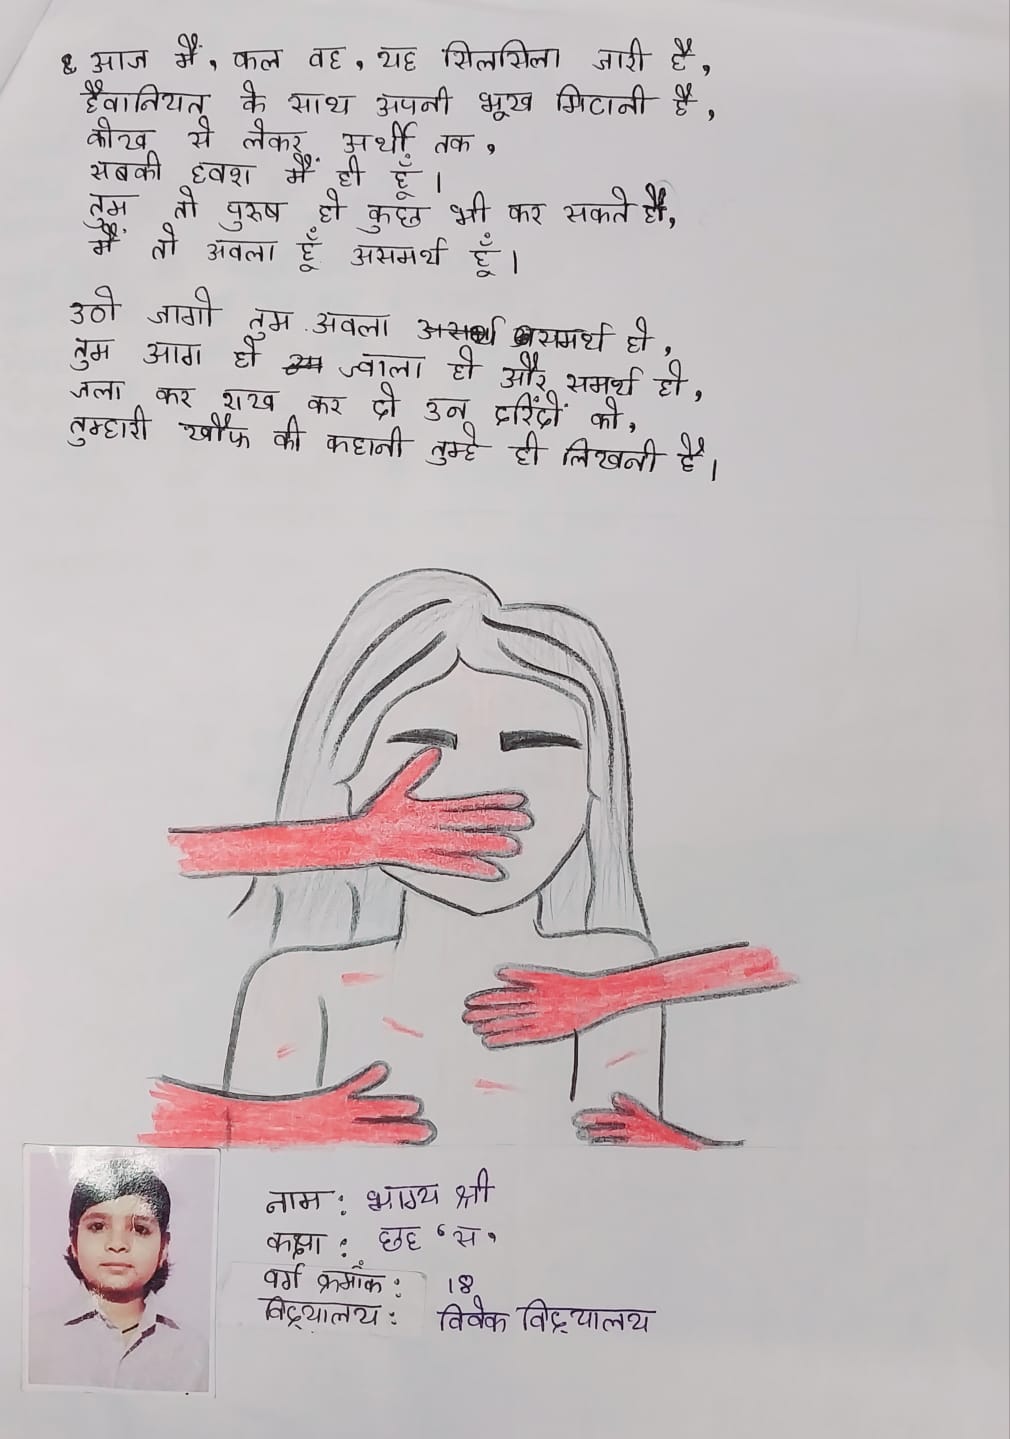 & आज मैं, कल वह, यह सिलसिला जारी है,
हैवानियत के साथ अपनी भूख मिटानी है,
कोख से लेकर अर्थी तक,
सबकी हवश मैं ही हूँ।
तुम तो पुरुष हो कुछ भी कर सकते हो,
मैं तो अवला हूँ असमर्थ हूँ।
उठो जागो तुम अवला असमर्थ हो,
तुम आग हो ज्वाला हो और समर्थ हो,
जला कर राख कर दो उन दरिंदों को,
तुम्हारी खौफ की कहानी तुम्हे ही लिखनी है।
नाम: भाग्य श्री
कक्षा: छह 'स'
वर्ग क्रमाँक: 18
विद्यालय: विवेक विद्यालय